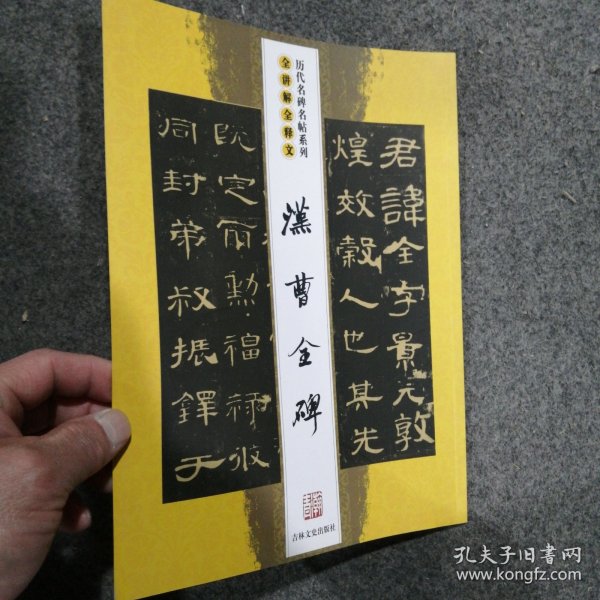 历代名碑名帖系列
全讲解全释文
漢曹全碑
吉林文史出版社
君諱全字景元敦
煌效穀人也其先
既定爾勲福祿攸
同封弟叔振鐸于
孔夫子旧书网
www.kongfz.com